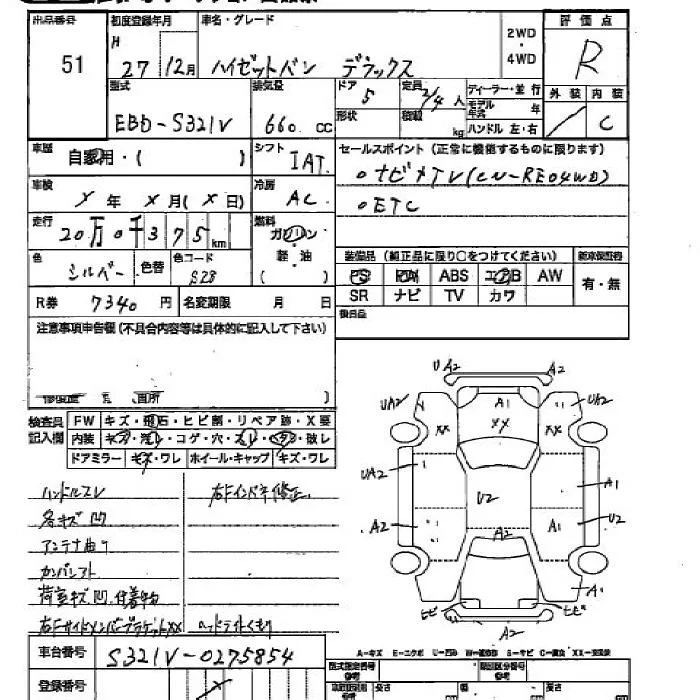 出品番号 51
初度登録年月 H 27 12月
車名・グレード ハイゼットバン デラックス
2WD・4WD
評価点 R
型式 EBD-S321V
排気量 660 cc
ドア 5
形状
定員 2/4 人
積載 kg
ディーラー・並行
モデル年式 年
ハンドル 左・右
外装 内装 C
車歴 自家用・( )
シフト IAT
セールスポイント(正常に機能するものに限ります)
○ナビ✗TV(CN-RE04WD)
○ETC
車検 X年 X月(X日)
冷房 AC
走行 20万0千375km
燃料 ガソリン・軽油 ( )
色 シルバー 色替 色コード S28
装備品(純正品に限り○をつけてください)
新車保証書 有・無
PS PW ABS エアB AW
SR ナビ TV カワ
R券 7340円 名変期限 月 日
後日品
注意事項申告欄(不具合内容等は具体的に記入して下さい)
検査員記入欄
FW キズ・飛石・ヒビ割・リペア跡・X要
内装 キズ・汚レ・コゲ・穴・スレ・ヘタリ・破レ
ドアミラー キズ・ワレ ホイール・キャップ キズ・ワレ
ハンドルスレ
各キズ凹
アンテナ曲り
カンバンアト
荷室キズ凹、付着物
右FサイドメンバーブラケットXX
右Fインパネ修正
ヘッドライトくもり
UA2 A2
UA2 A1 UA2
XX XX XX
UA2 U2 A1
A2 A2 A1 U2
A1
ヒビ ヒビ
A2
車台番号 S321V-0275854
登録番号 X
A-キズ E-エクボ U-凹み
型式指定番号 類別区分番号
長さ